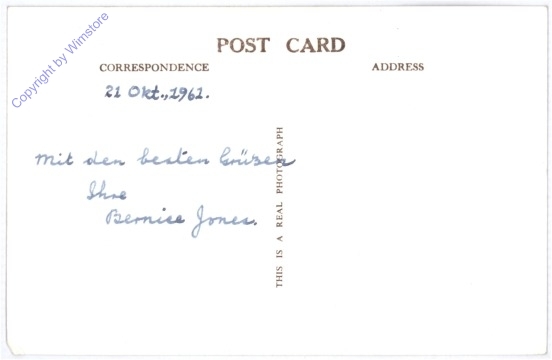 Copyright by Wimstore
POST CARD
CORRESPONDENCE
ADDRESS
21 Okt., 1961.
Mit den besten Grüßen
Ihre
Bernice Jones.
THIS IS A REAL PHOTOGRAPH